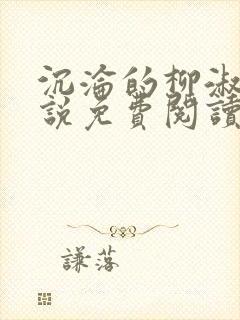 沉淪的柳淑
說免費閱讀
謙落